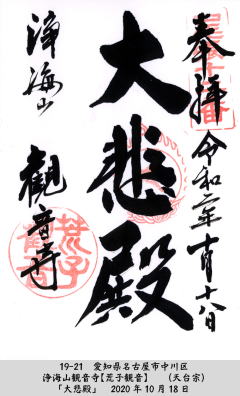 奉拝
令和二年十月十八日
大悲殿
浄海山
観音寺
荒子
観音
19-21 愛知県名古屋市中川区
浄海山観音寺【荒子観音】 (天台宗)
「大悲殿」 2020年10月18日